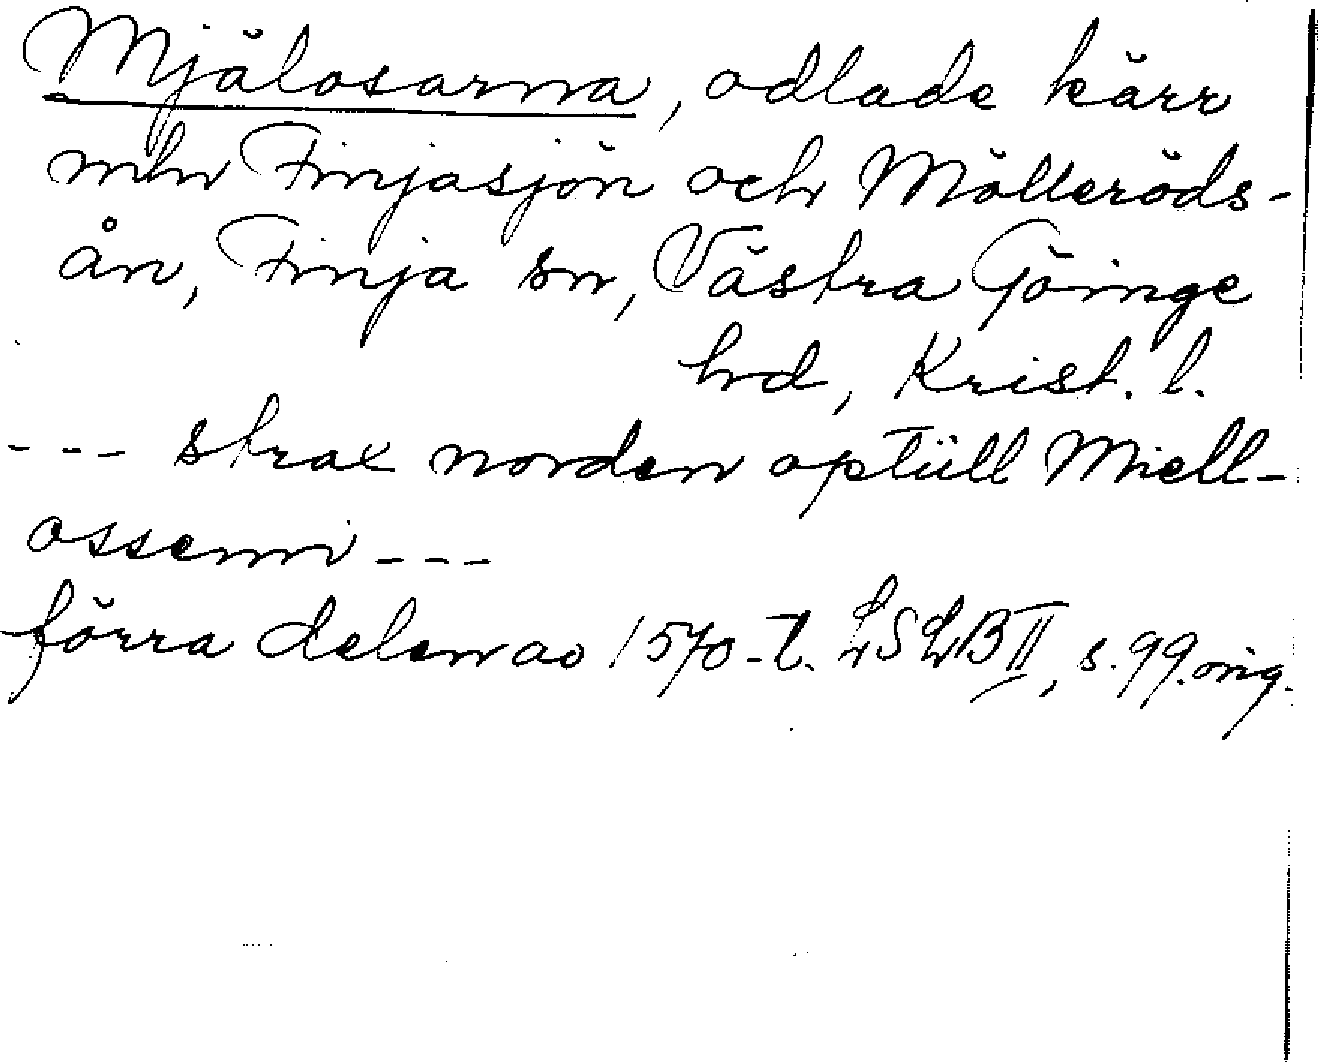 Mjälosarna, odlade kärr
mln Finjasjön och Mölleröds-
ån, Finja sn, Västra Göinge
hd, Krist. l.
--- strax norden optüll Miell-
ossenn ---
förra delen av 1570-t. LSLB II, s. 99. orig.